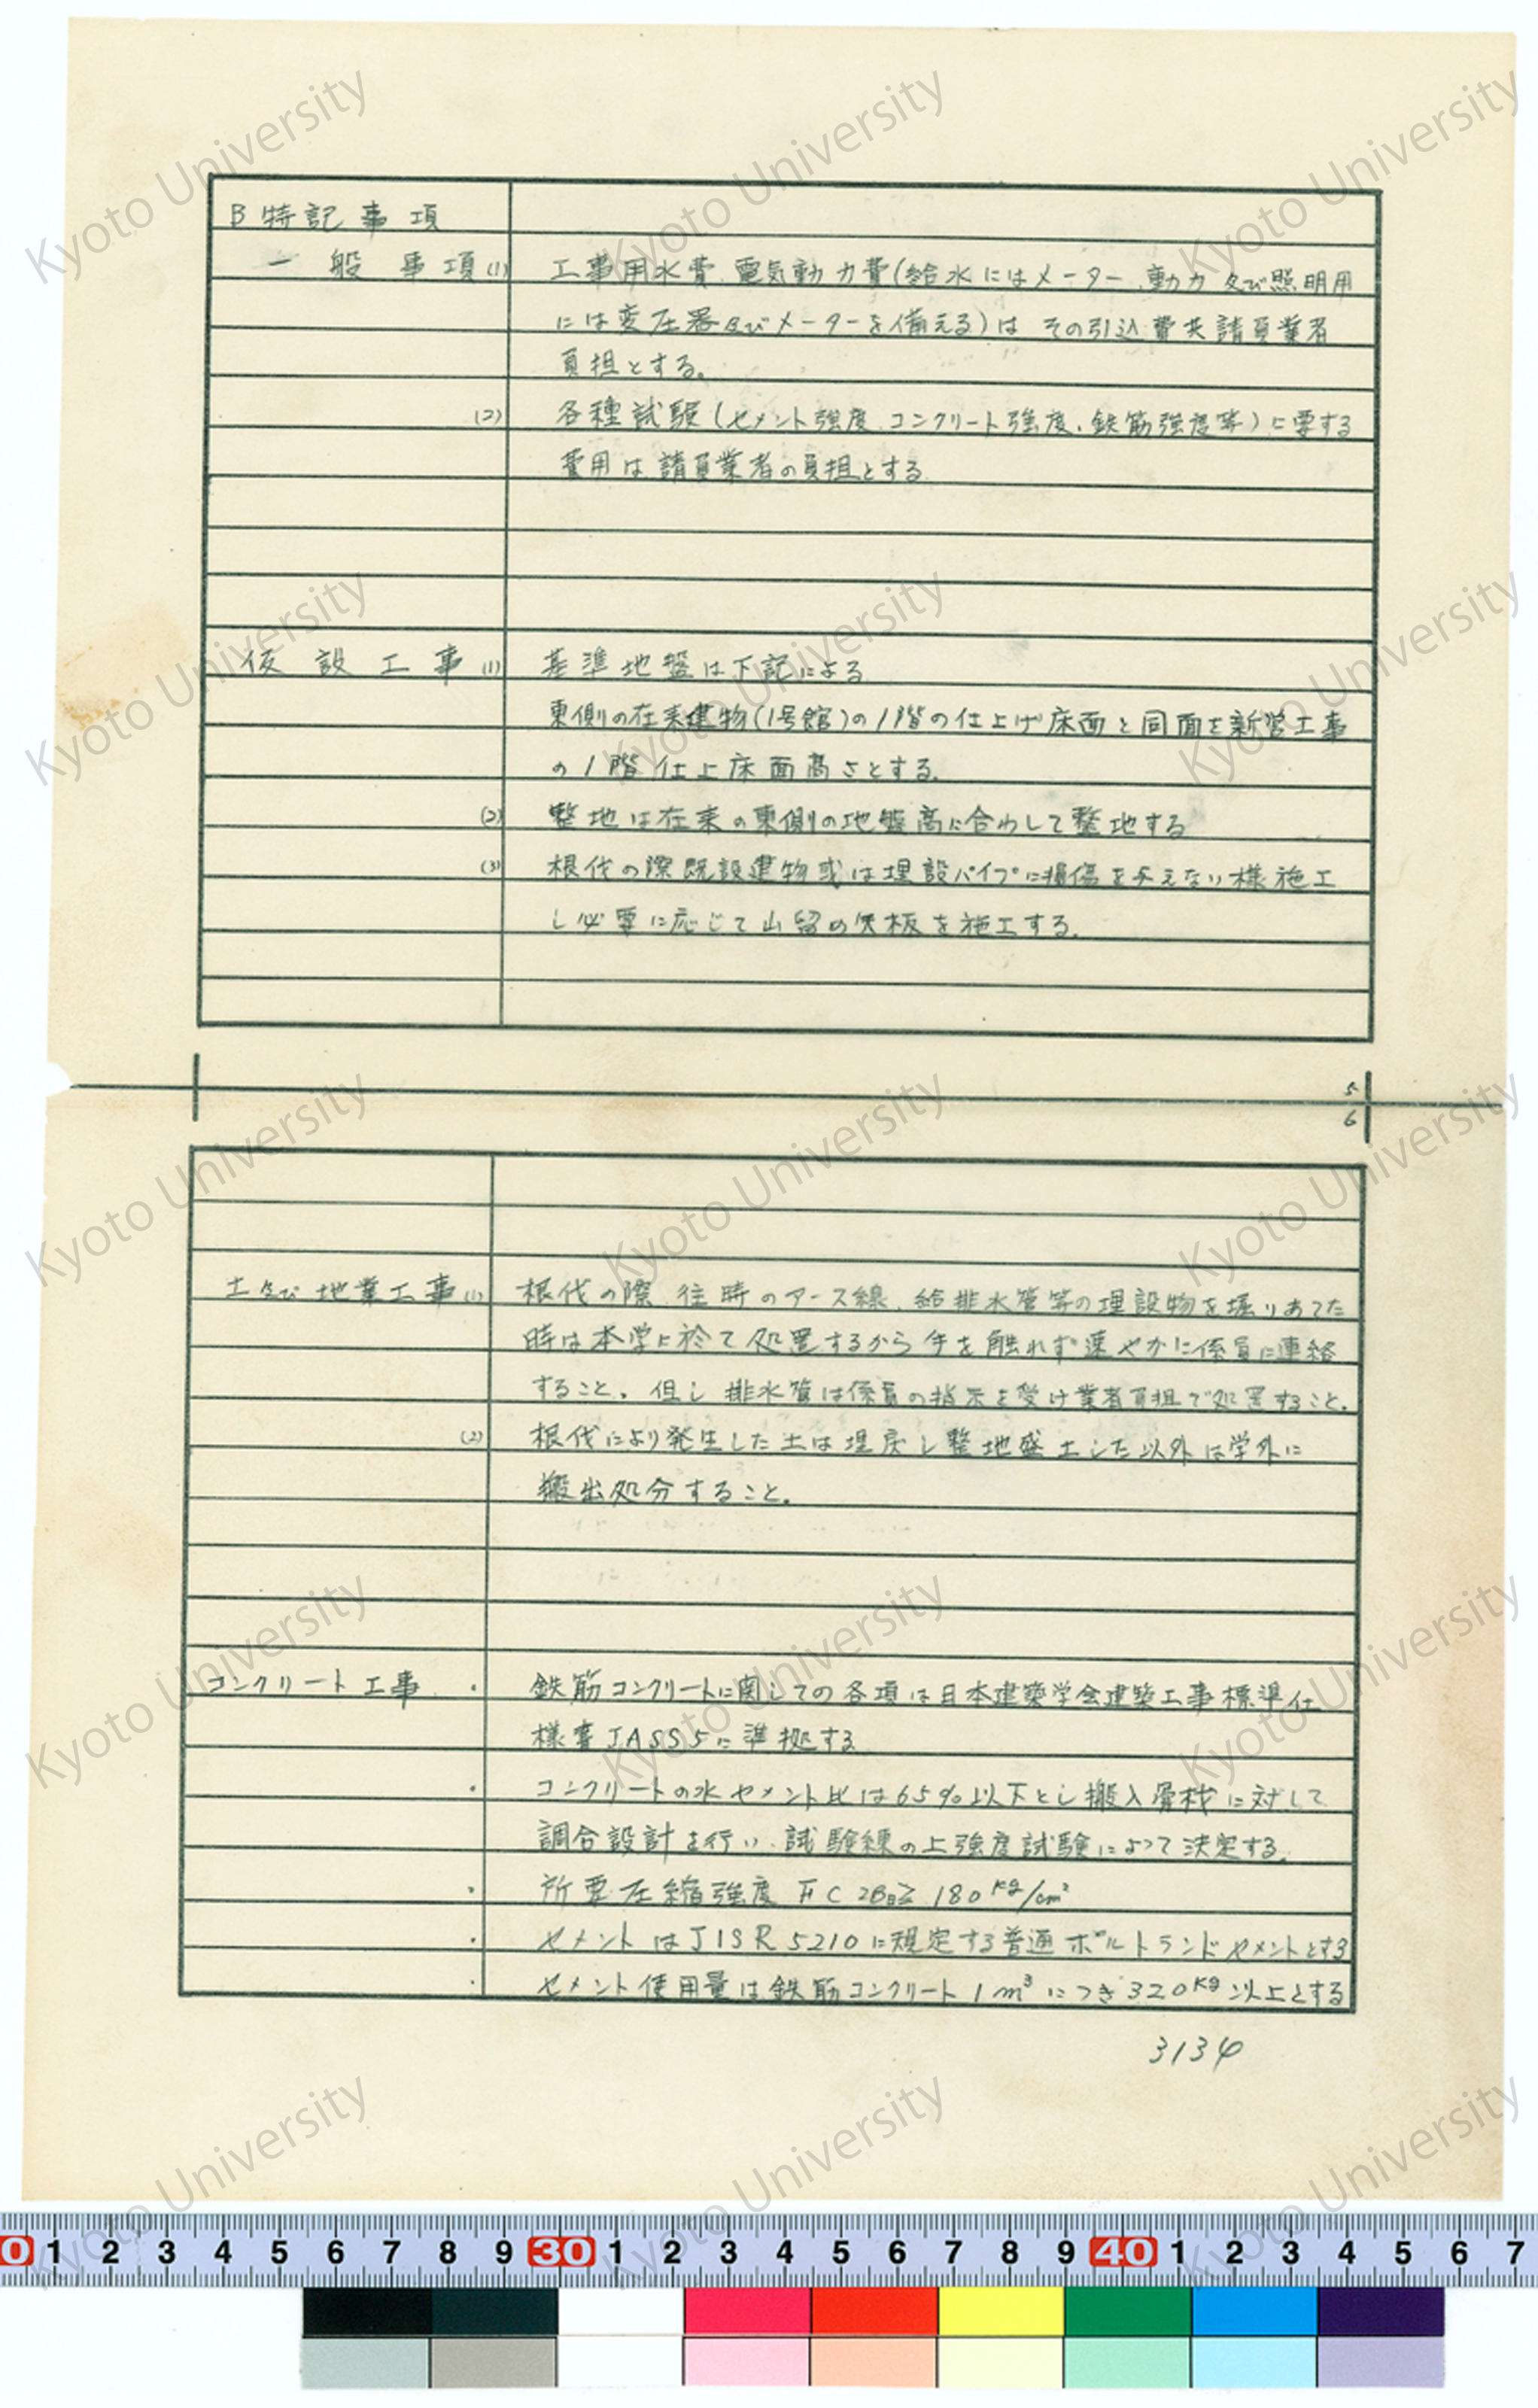 B 特記事項
一般事項 (1) 工事用水費、電気動力費(給水にはメーター、動力及び照明用
には変圧器及びメーターを備える)は その引込費共請負業者
負担とする。
(2) 各種試験(セメント強度、コンクリート強度、鉄筋強度等)に要する
費用は請負業者の負担とする
仮設工事 (1) 基準地盤は下記による
東側の在来建物(1号館)の1階の仕上げ床面と同面を新営工事
の1階仕上床面高さとする。
(2) 整地は在来の東側の地盤高に合わして整地する
(3) 根伐の際既設建物或は埋設パイプに損傷を与えない様施工
し必要に応じて山留の矢板を施工する。
5
6
土及び地業工事 (1) 根伐の際 往時のアース線、給排水管等の埋設物を堀りあてた
時は本学に於て処置するから手を触れず速やかに係員に連絡
すること。但し排水管は係員の指示を受け業者負担で処置すること。
(2) 根伐により発生した土は埋戻し整地盛土した以外は学外に
搬出処分すること。
コンクリート工事 ・ 鉄筋コンクリートに関しての各項は日本建築学会建築工事標準仕
様書JASS5に準拠する
・ コンクリートの水セメント比は65%以下とし搬入骨材に対して
調合設計を行い、試験練の上強度試験によって決定する。
・ 所要圧縮強度 FC 28日≧ 180kg/cm²
・ セメントはJISR5210に規定する普通ポルトランドセメントとする
・ セメント使用量は鉄筋コンクリート1m³につき320kg以上とする
3134
Kyoto University
0 1 2 3 4 5 6 7 8 9 30 1 2 3 4 5 6 7 8 9 40 1 2 3 4 5 6 7